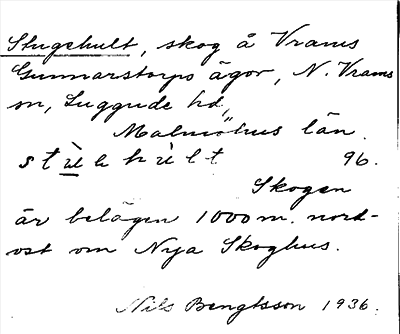 Stugehult, skog å Vrams
Gunnarstorps ägor, N. Vrams
sn, Luggude hd,
Malmöhus län.
stùehùlt 96.
Skogen
är belägen 1000 m. nord-
ost om Nya Skoghus.
Nils Bengtsson 1936.